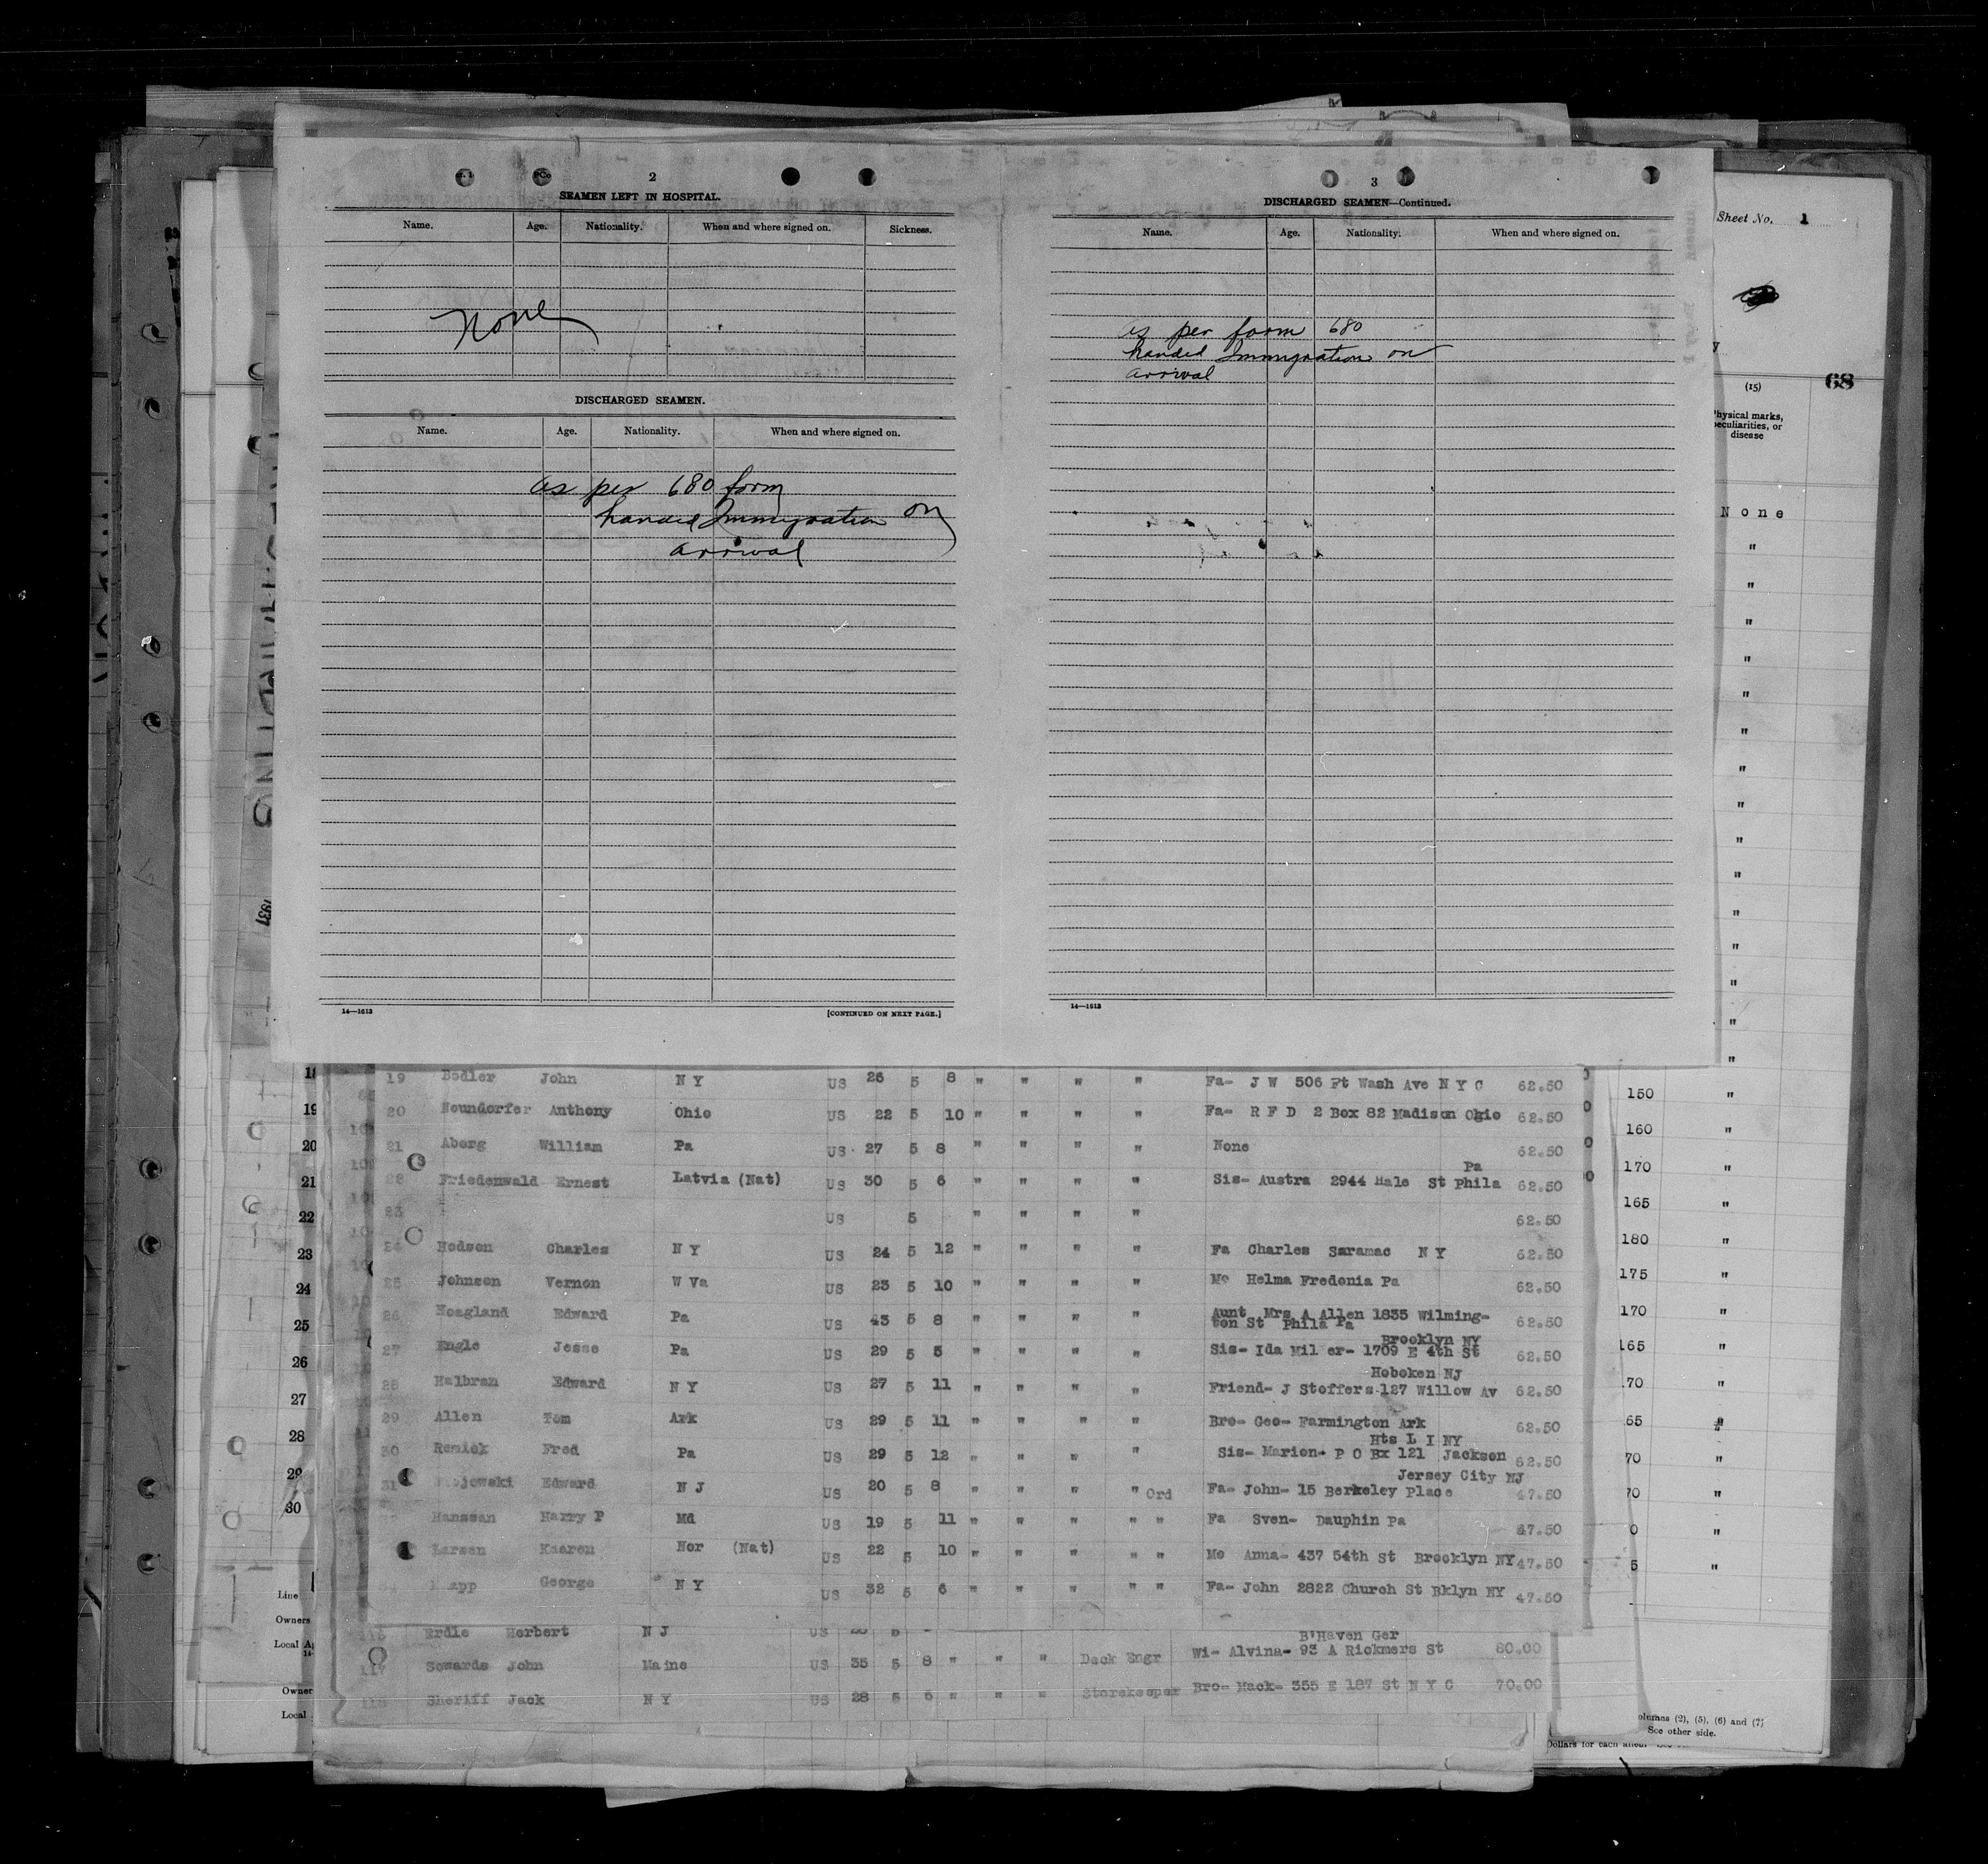 2
SEAMEN LEFT IN HOSPITAL.
Name. Age. Nationality. When and where signed on. Sickness.
None
DISCHARGED SEAMEN.
Name. Age. Nationality. When and where signed on.
as per 680 form
handed Immigration on
arrival
14—1613 [CONTINUED ON NEXT PAGE.]
3
DISCHARGED SEAMEN—Continued.
Name. Age. Nationality. When and where signed on.
as per form 680
handed Immigration on
arrival
14—1613
Sheet No. 1
68
(15)
Physical marks,
peculiarities, or
disease
None
"
"
"
"
"
"
"
"
"
"
"
"
"
"
"
1937
19 Bodler John N Y US 26 5 8 " " " " Fa- J W 506 Ft Wash Ave N Y C 62.50
20 Neundorfer Anthony Ohio US 22 5 10 " " " " Fa- R F D 2 Box 82 Madison Ohio 62.50
21 Aberg William Pa US 27 5 8 " " " " None 62.50
Pa
22 Friedenwald Ernest Latvia (Nat) US 30 5 6 " " " " Sis- Austra 2944 Hale St Phila 62.50
23 US 5 " " " " 62.50
24 Hodson Charles N Y US 24 5 12 " " " " Fa Charles Saramac N Y 62.50
25 Johnson Vernon W Va US 23 5 10 " " " " Mo Helma Fredonia Pa 62.50
26 Hoagland Edward Pa US 43 5 8 " " " " Aunt Mrs A Allen 1835 Wilming-
ton St Phila Pa 62.50
Brooklyn NY
27 Engle Jesse Pa US 29 5 5 " " " " Sis- Ida Mil er- 1709 E 4th St 62.50
Hoboken NJ
28 Halbran Edward N Y US 27 5 11 " " " " Friend- J Stoffers-127 Willow Av 62.50
29 Allen Tom Ark US 29 5 11 " " " " Bro- Geo- Farmington Ark 62.50
Hts L I NY
30 Remick Fred Pa US 29 5 12 " " " " Sis- Marion- P O Bx 121 Jackson 62.50
Jersey City NJ
31 Edward N J US 20 5 8 " " " " Ord Fa- John- 15 Berkeley Place 47.50
Hanssan Harry P Md US 19 5 11 " " " " " Fa Sven- Dauphin Pa 47.50
Larsen Kaaren Nor (Nat) US 22 5 10 " " " " " Mo Anna- 437 54th St Brooklyn NY 47.50
George N Y US 32 5 6 " " " " " Fa- John 2822 Church St Bklyn NY 47.50
Erdle Herbert N J US
B'Haven Ger
117 Sowards John Maine US 35 5 8 " " " Deck Engr Wi- Alvina- 93 A Rickmers St 80.00
118 Sheriff Jack N Y US 28 5 6 " " " Storekeeper Bro- Mack- 355 E 187 St N Y C 70.00
19
20
21
22
23
24
25
26
27
28
29
30
Line
Owners
Local
Owner
Local
150 "
160 "
170 "
165 "
180 "
175 "
170 "
165 "
70 "
65 "
70 "
70 "
0 "
5 "
columns (2), (5), (6) and (7)
See other side.
Dollars for each